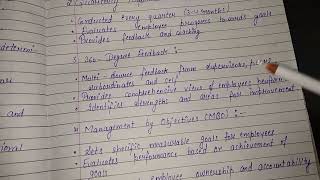 Conducted every quarter (3-4 months)
Evaluates employee progress towards goals
Provides feedback and coaching
3. 360-Degree Feedback:-
Multi-source feedback from supervisors,
subordinates and self
Provides comprehensive views of employees
Identifies strengths and areas for improvement
Management by Objectives (MBO):-
Sets specific, measurable goals for employees
Evaluates performance based on achievement of
goals
employee ownership and accountability